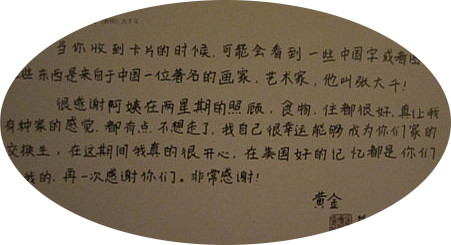 当你收到卡片的时候,可能会看到一些中国字或者图
些东西是来自于中国一位著名的画家、艺术家,他叫张大千!
很感谢阿姨在两星期的照顾,食物、住都很好,真让我
有种家的感觉,都有点不想走了,我自己很幸运能够成为你们家的
交换生,在这期间我真的很开心,在美国好的记忆都是你们
我的,再一次感谢你们。非常感谢!
黄金